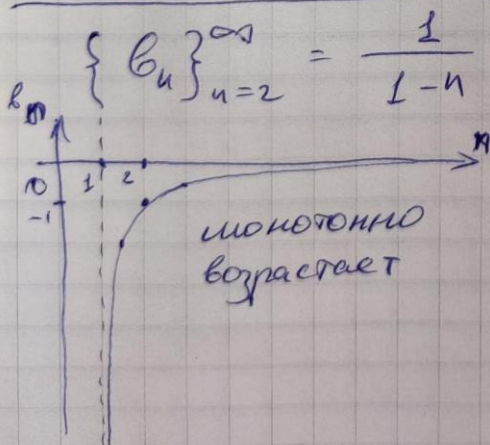 { bₙ }ₙ₌₂^∞ = 1/(1-n)
bₙ
n
0 1 2
-1
монотонно
возрастает